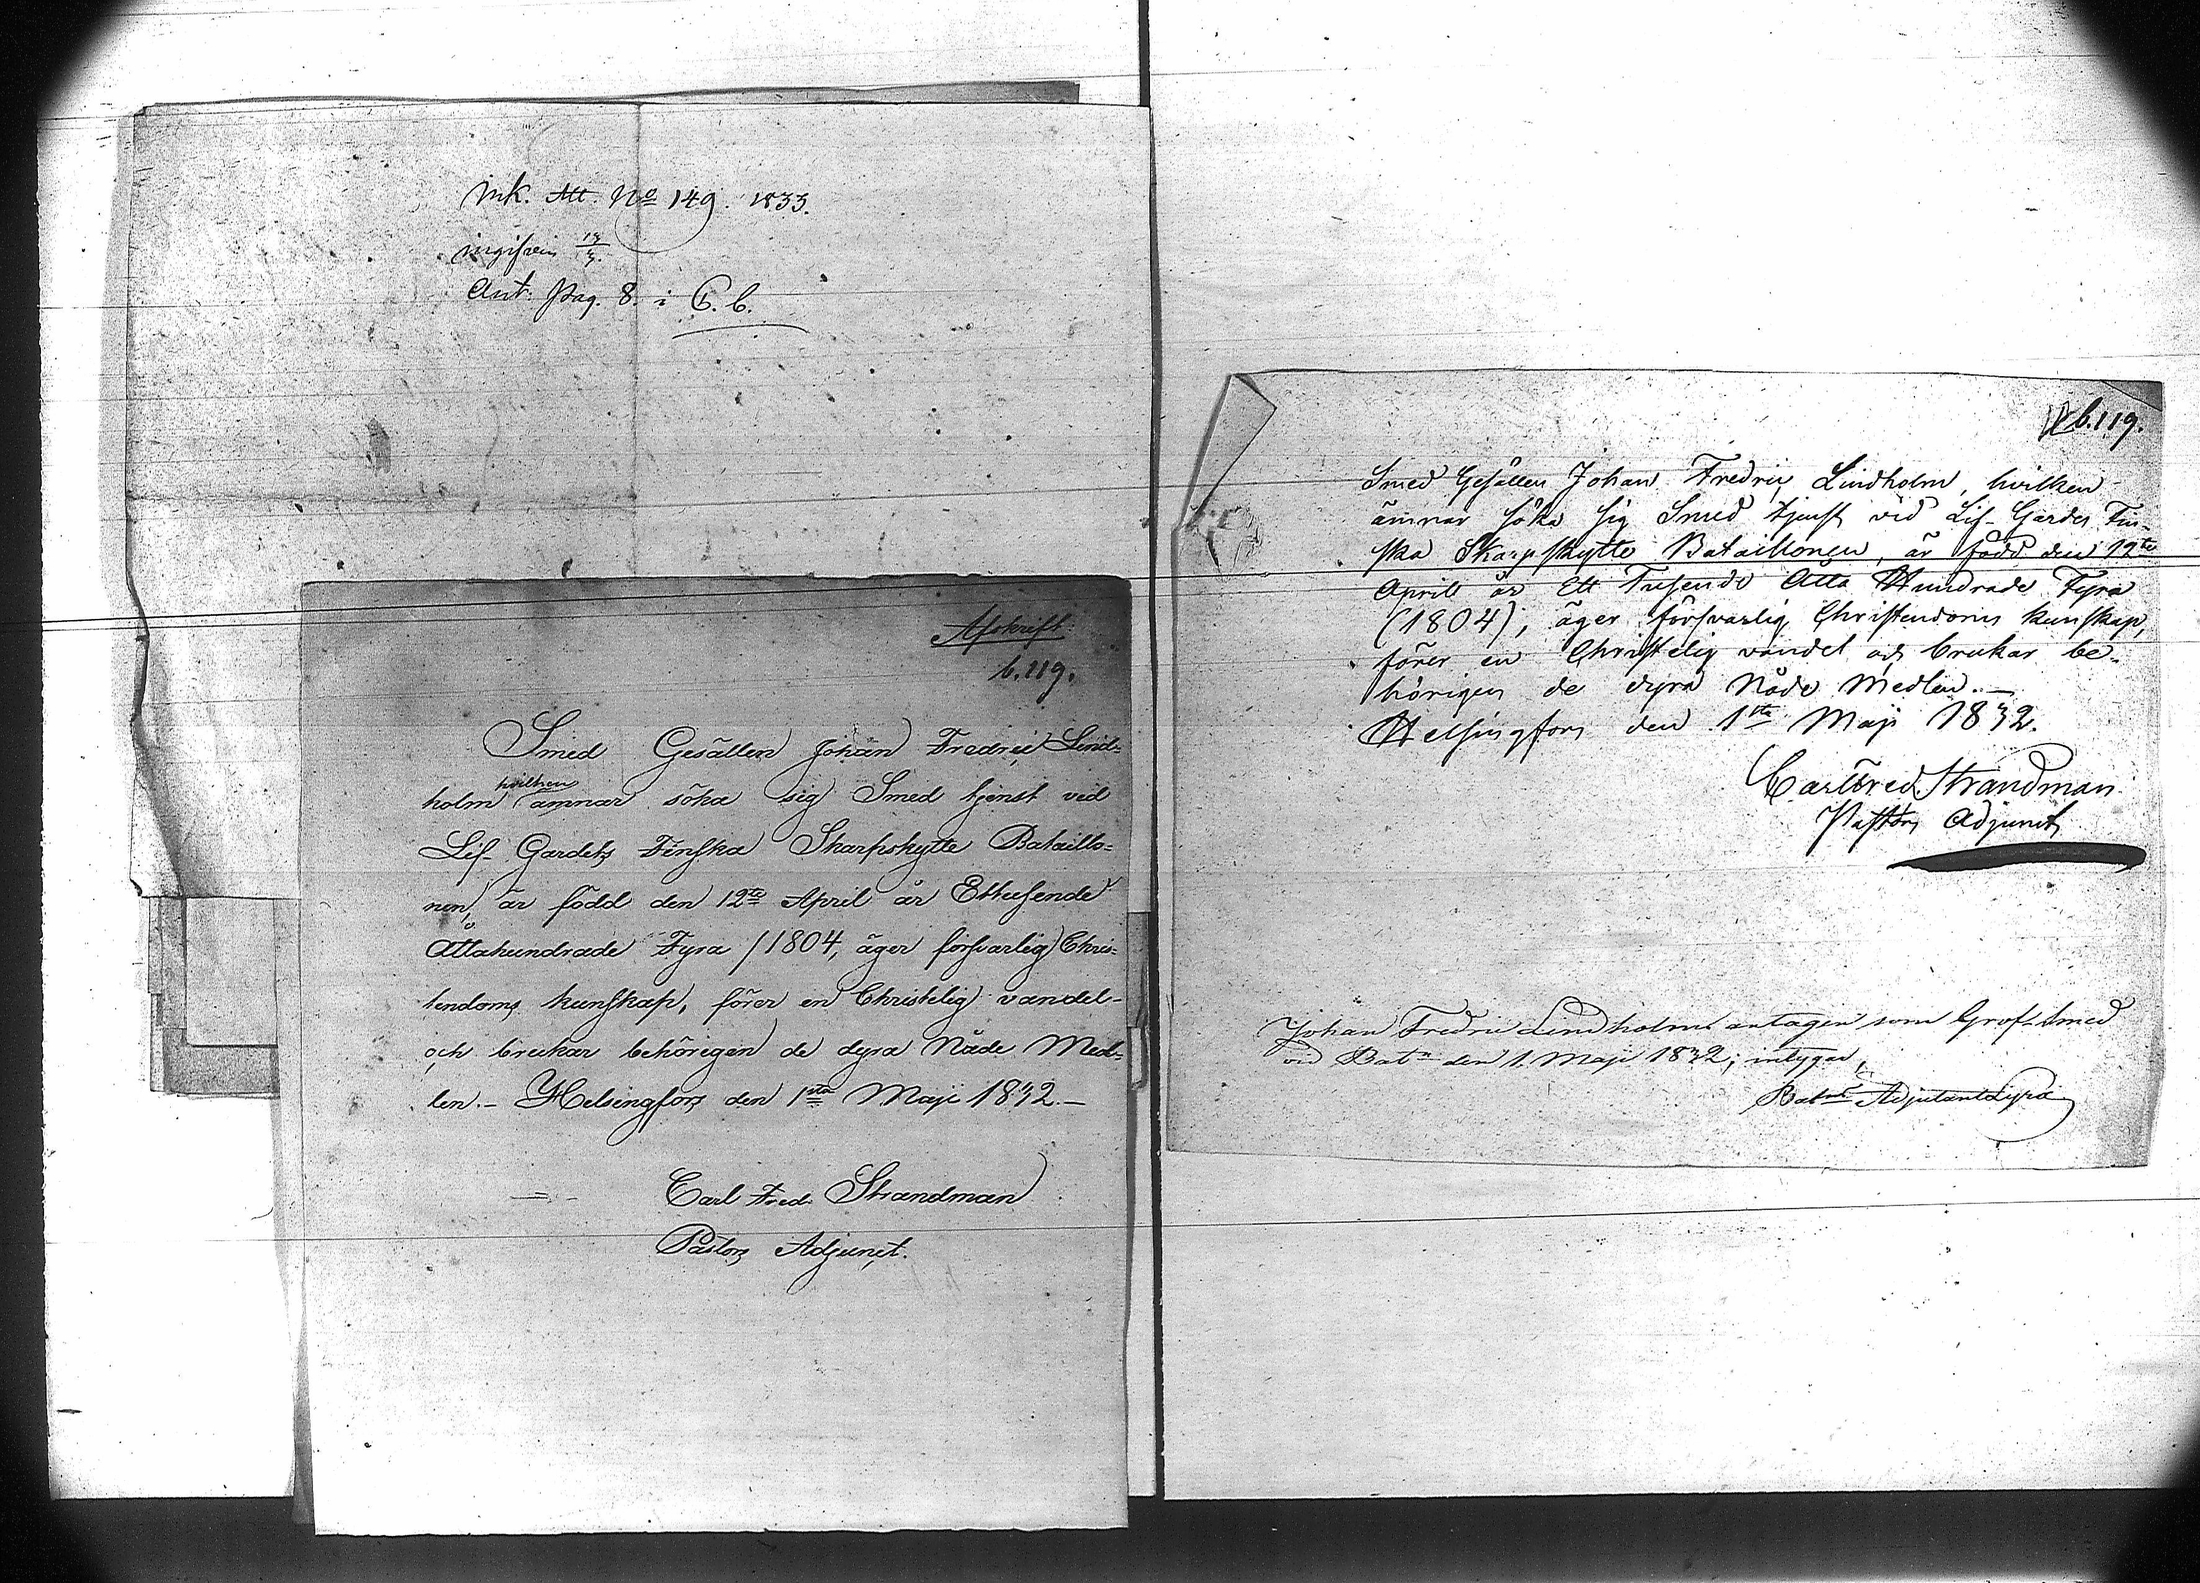 ink. Att. No 149. 1833.
Ant. Pag. 8. i C. b.
Afskrift.
b. 119.
Smed Gesällen Johan Fredric Lind-
hvilken
holm ämnar söka sig Smed tjenst vid
Lif- Gardets Finska Skarpskytte Bataillo-
nen, är född den 12te April år Ettusende
Åttahundrade Fyra /1804, äger försvarlig Chris-
tendoms kunskap, förer en Christelig vandel
och brukar behörigen de dyra Nåde Med-
len. - Helsingfors den 1sta Maji 1832. -
Carl Fred: Strandman
Pastors Adjunct.
b. 119.
Smed Gesällen Johan Fredric Lindholm, hvilken
ämnar söka sig Smed tjenst vid Lif- Gardes Fin-
ska Skarpskytte Bataillonen, är född den 12te
April år Ett Tusende Åtta Hundrade Fyra
(1804), äger försvarlig Christendoms kunskap,
förer en Christelig vandel och brukar be-
hörigen de dyra Nåde Medlen. -
Helsingfors den 1sta Maji 1832.
Carl Fred. Strandman
Pastors Adjunct
Johan Fredric Lindholm antagen som Grof-Smed
vid Batn den 1. Maji 1832; intygar,
Batns Adjutant Lyra